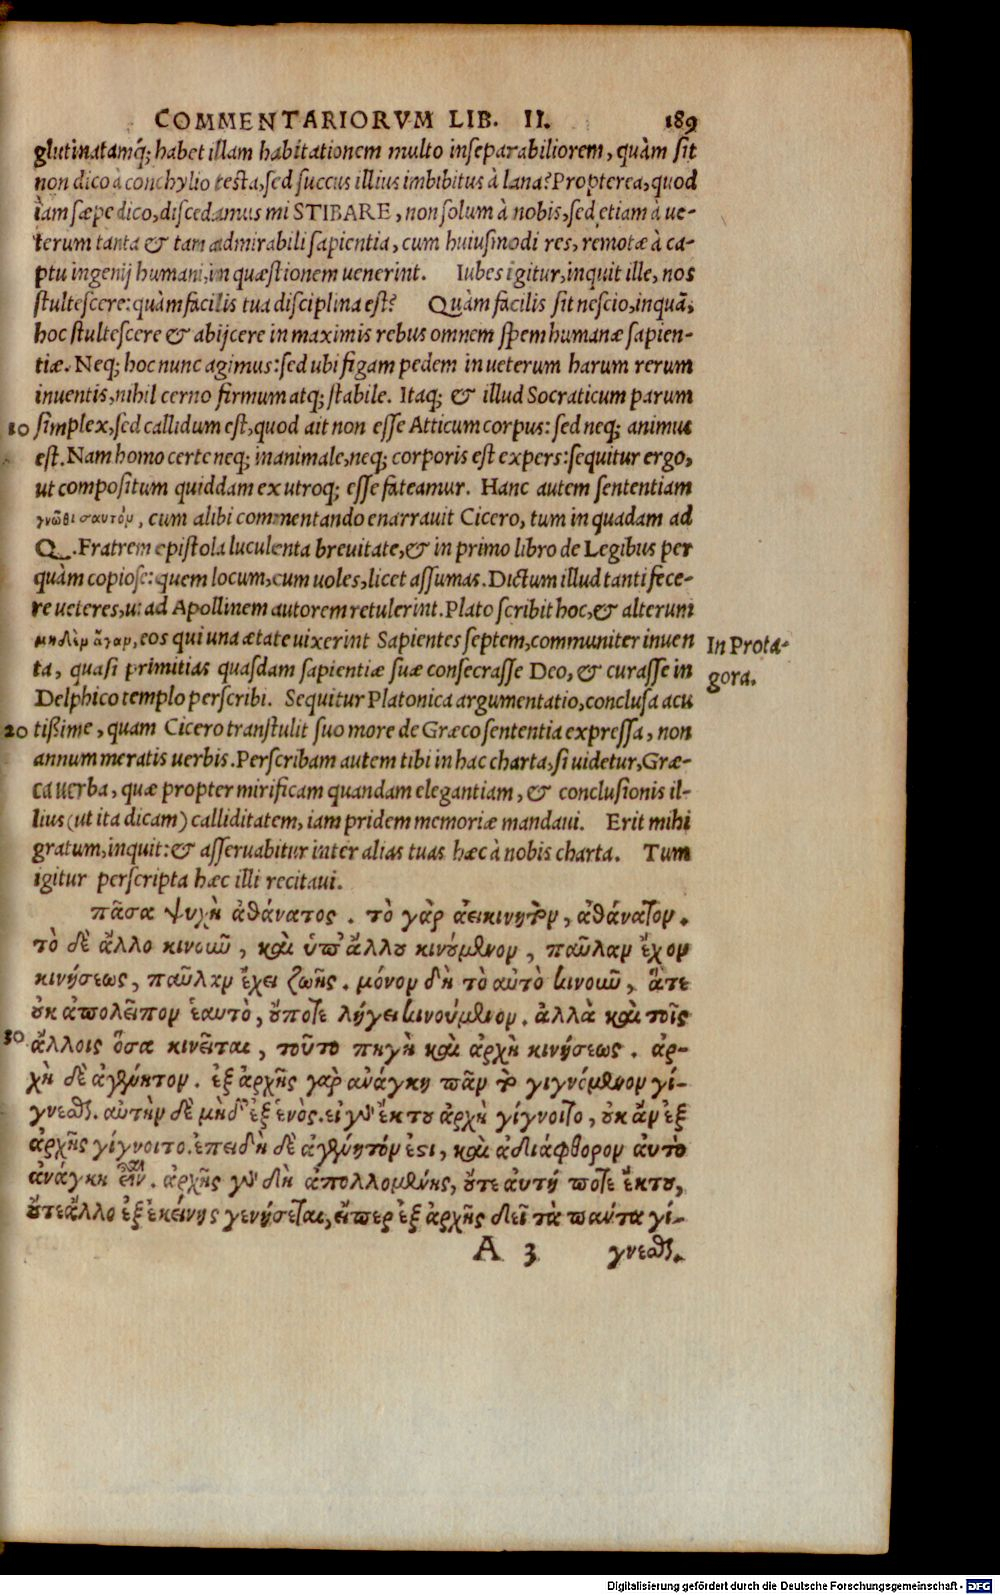 COMMENTARIORVM LIB. II. 189
glutinatamq́; habet illam habitationem multo inseparabiliorem, quàm sit
non dico à conchylio testa, sed succus illius imbibitus à lana? Propterea, quod
iàm sæpe dico, discedamus mi STIBARE, non solum à nobis, sed etiam à ue-
terum tanta & tam admirabili sapientia, cum huiusmodi res, remotæ à ca-
ptu ingenij humani, in quæstionem uenerint. Iubes igitur, inquit ille, nos
stultescere: quàm facilis tua disciplina est? Quàm facilis sit nescio, inquā,
hoc stultescere & abijcere in maximis rebus omnem spem humanæ sapien-
tiæ. Neq; hoc nunc agimus: sed ubi figam pedem in ueterum harum rerum
inuentis, nihil cerno firmum atq; stabile. Itaq; & illud Socraticum parum
10 simplex, sed callidum est, quod ait non esse Atticum corpus: sed neq; animus
est. Nam homo certe neq; inanimale, neq; corporis est expers: sequitur ergo,
ut compositum quiddam ex utroq; esse fateamur. Hanc autem sententiam
γνῶθι σαυτόν, cum alibi commentando enarrauit Cicero, tum in quadam ad
Q. Fratrem epistola luculenta breuitate, & in primo libro de Legibus per
quàm copiose: quem locum, cum uoles, licet assumas. Dictum illud tanti fece-
re ueteres, ut ad Apollinem autorem retulerint. Plato scribit hoc, & alterum
μηδὲν ἄγαν, eos qui una ætate uixerint Sapientes septem, communiter inuen
In Prota-
ta, quasi primitias quasdam sapientiæ suæ consecrasse Deo, & curasse in
gora.
Delphico templo perscribi. Sequitur Platonica argumentatio, conclusa acu
20 tißime, quam Cicero transtulit suo more de Græco sententia expressa, non
annumeratis uerbis. Perscribam autem tibi in hac charta, si uidetur, Græ-
ca uerba, quæ propter mirificam quandam elegantiam, & conclusionis il-
lius (ut ita dicam) calliditatem, iam pridem memoriæ mandaui. Erit mihi
gratum, inquit: & asseruabitur inter alias tuas hæc à nobis charta. Tum
igitur perscripta hæc illi recitaui.
πᾶσα ψυχὴ ἀθάνατος. τὸ γὰρ ἀεικινητὸν, ἀθάνατον.
τὸ δὲ ἄλλο κινοῦν, καὶ ὑπ' ἄλλου κινούμενον, παῦλαν ἔχον
κινήσεως, παῦλαν ἔχει ζωῆς. μόνον δὴ τὸ αὐτὸ κινοῦν, ἅτε
οὐκ ἀπολεῖπον ἑαυτὸ, οὔποτε λήγει κινούμενον. ἀλλὰ καὶ τοῖς
30 ἄλλοις ὅσα κινεῖται, τοῦτο πηγὴ καὶ ἀρχὴ κινήσεως. ἀρ-
χὴ δὲ ἀγένητον. ἐξ ἀρχῆς γὰρ ἀνάγκη πᾶν τὸ γιγνόμενον γί-
γνεσθαι. αὐτὴν δὲ μηδ' ἐξ ἑνός. εἰ γὰρ ἔκ του ἀρχὴ γίγνοιτο, οὐκ ἂν ἐξ
ἀρχῆς γίγνοιτο. ἐπειδὴ δὲ ἀγένητόν ἐστι, καὶ ἀδιάφθορον αὐτὸ
ἀνάγκη εἶναι. ἀρχῆς γὰρ δὴ ἀπολλομένης, οὔτε αὐτή ποτε ἔκ του,
οὔτε ἄλλο ἐξ ἐκείνης γενήσεται, εἴπερ ἐξ ἀρχῆς δεῖ τὰ πάντα γί-
A 3 γνεσθαι.
Digitalisierung gefördert durch die Deutsche Forschungsgemeinschaft - DFG